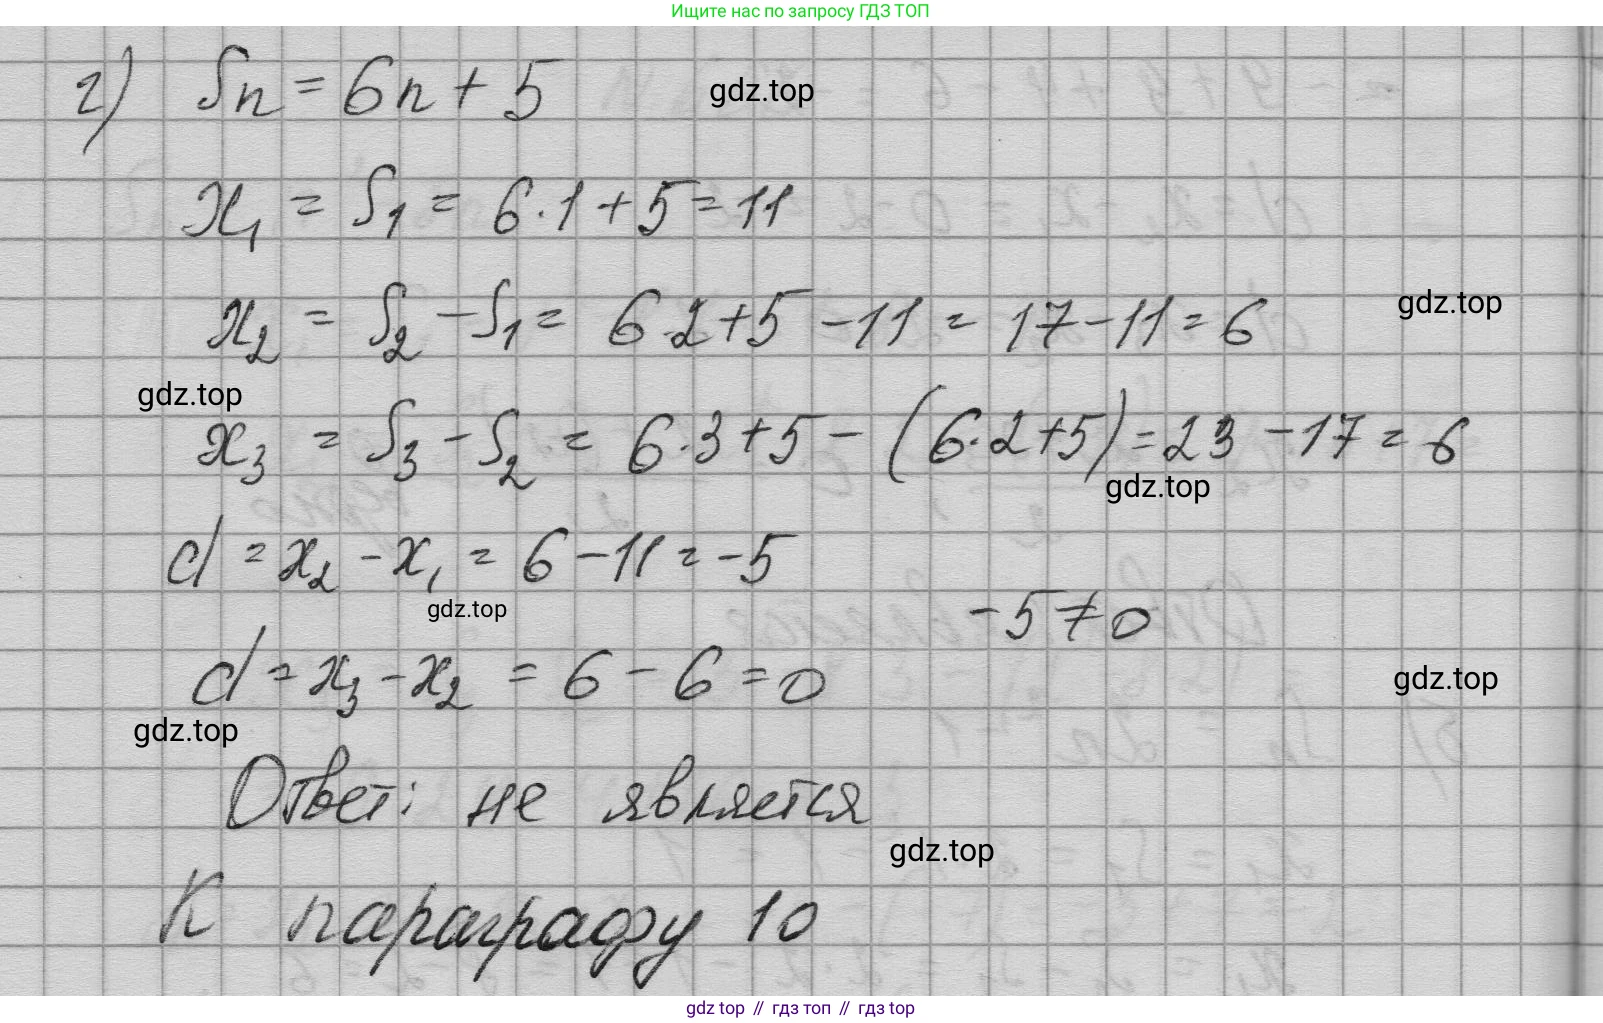 Ищите нас по запросу ГДЗ ТОП
г) Sn = 6n + 5
gdz.top
x₁ = S₁ = 6·1 + 5 = 11
x₂ = S₂ - S₁ = 6·2 + 5 - 11 = 17 - 11 = 6
gdz.top
gdz.top
x₃ = S₃ - S₂ = 6·3 + 5 - (6·2 + 5) = 23 - 17 = 6
gdz.top
d = x₂ - x₁ = 6 - 11 = -5
gdz.top
-5 ≠ 0
d = x₃ - x₂ = 6 - 6 = 0
gdz.top
gdz.top
Ответ: не является
gdz.top
К параграфу 10
gdz top // гдз топ // гдз top